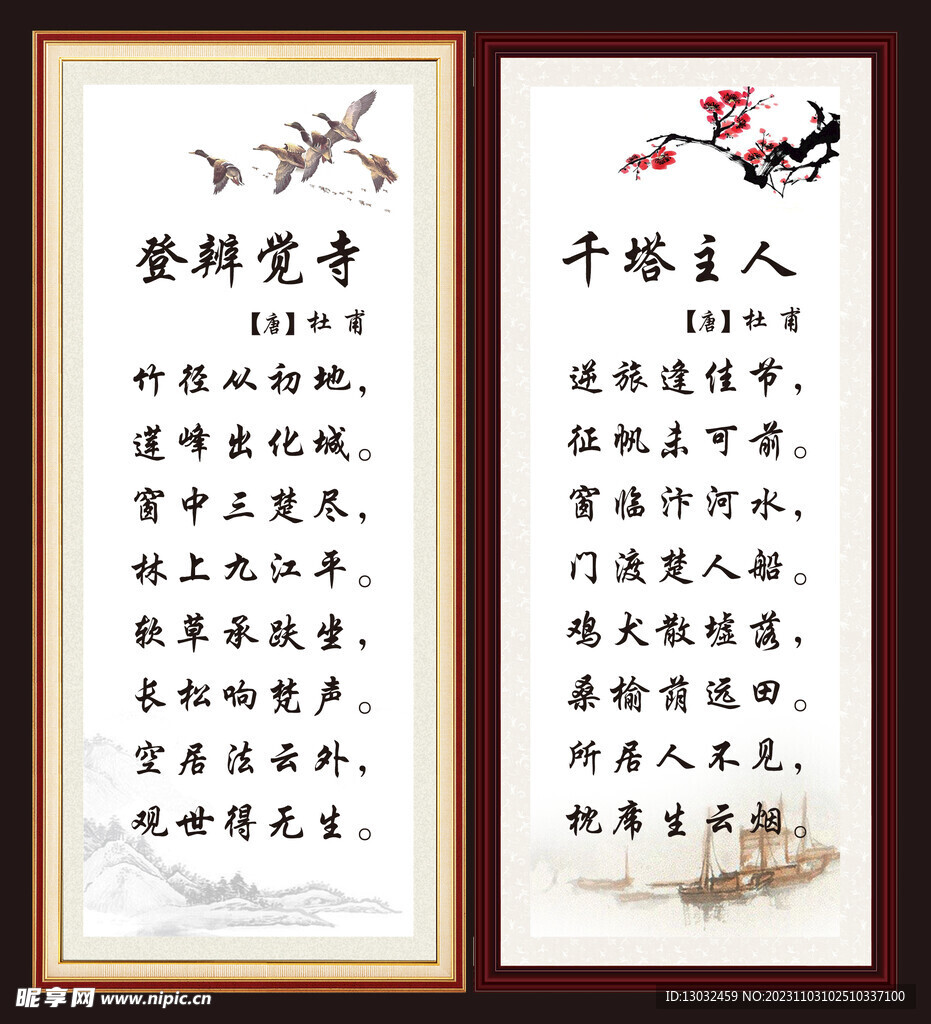 登辨觉寺
【唐】杜 甫
竹径从初地，
莲峰出化城。
窗中三楚尽，
林上九江平。
软草承趺坐，
长松响梵声。
空居法云外，
观世得无生。
千塔主人
【唐】杜 甫
逆旅逢佳节，
征帆未可前。
窗临汴河水，
门渡楚人船。
鸡犬散墟落，
桑榆荫远田。
所居人不见，
枕席生云烟。
昵享网 www.nipic.cn
ID:13032459 NO:20231103102510337100